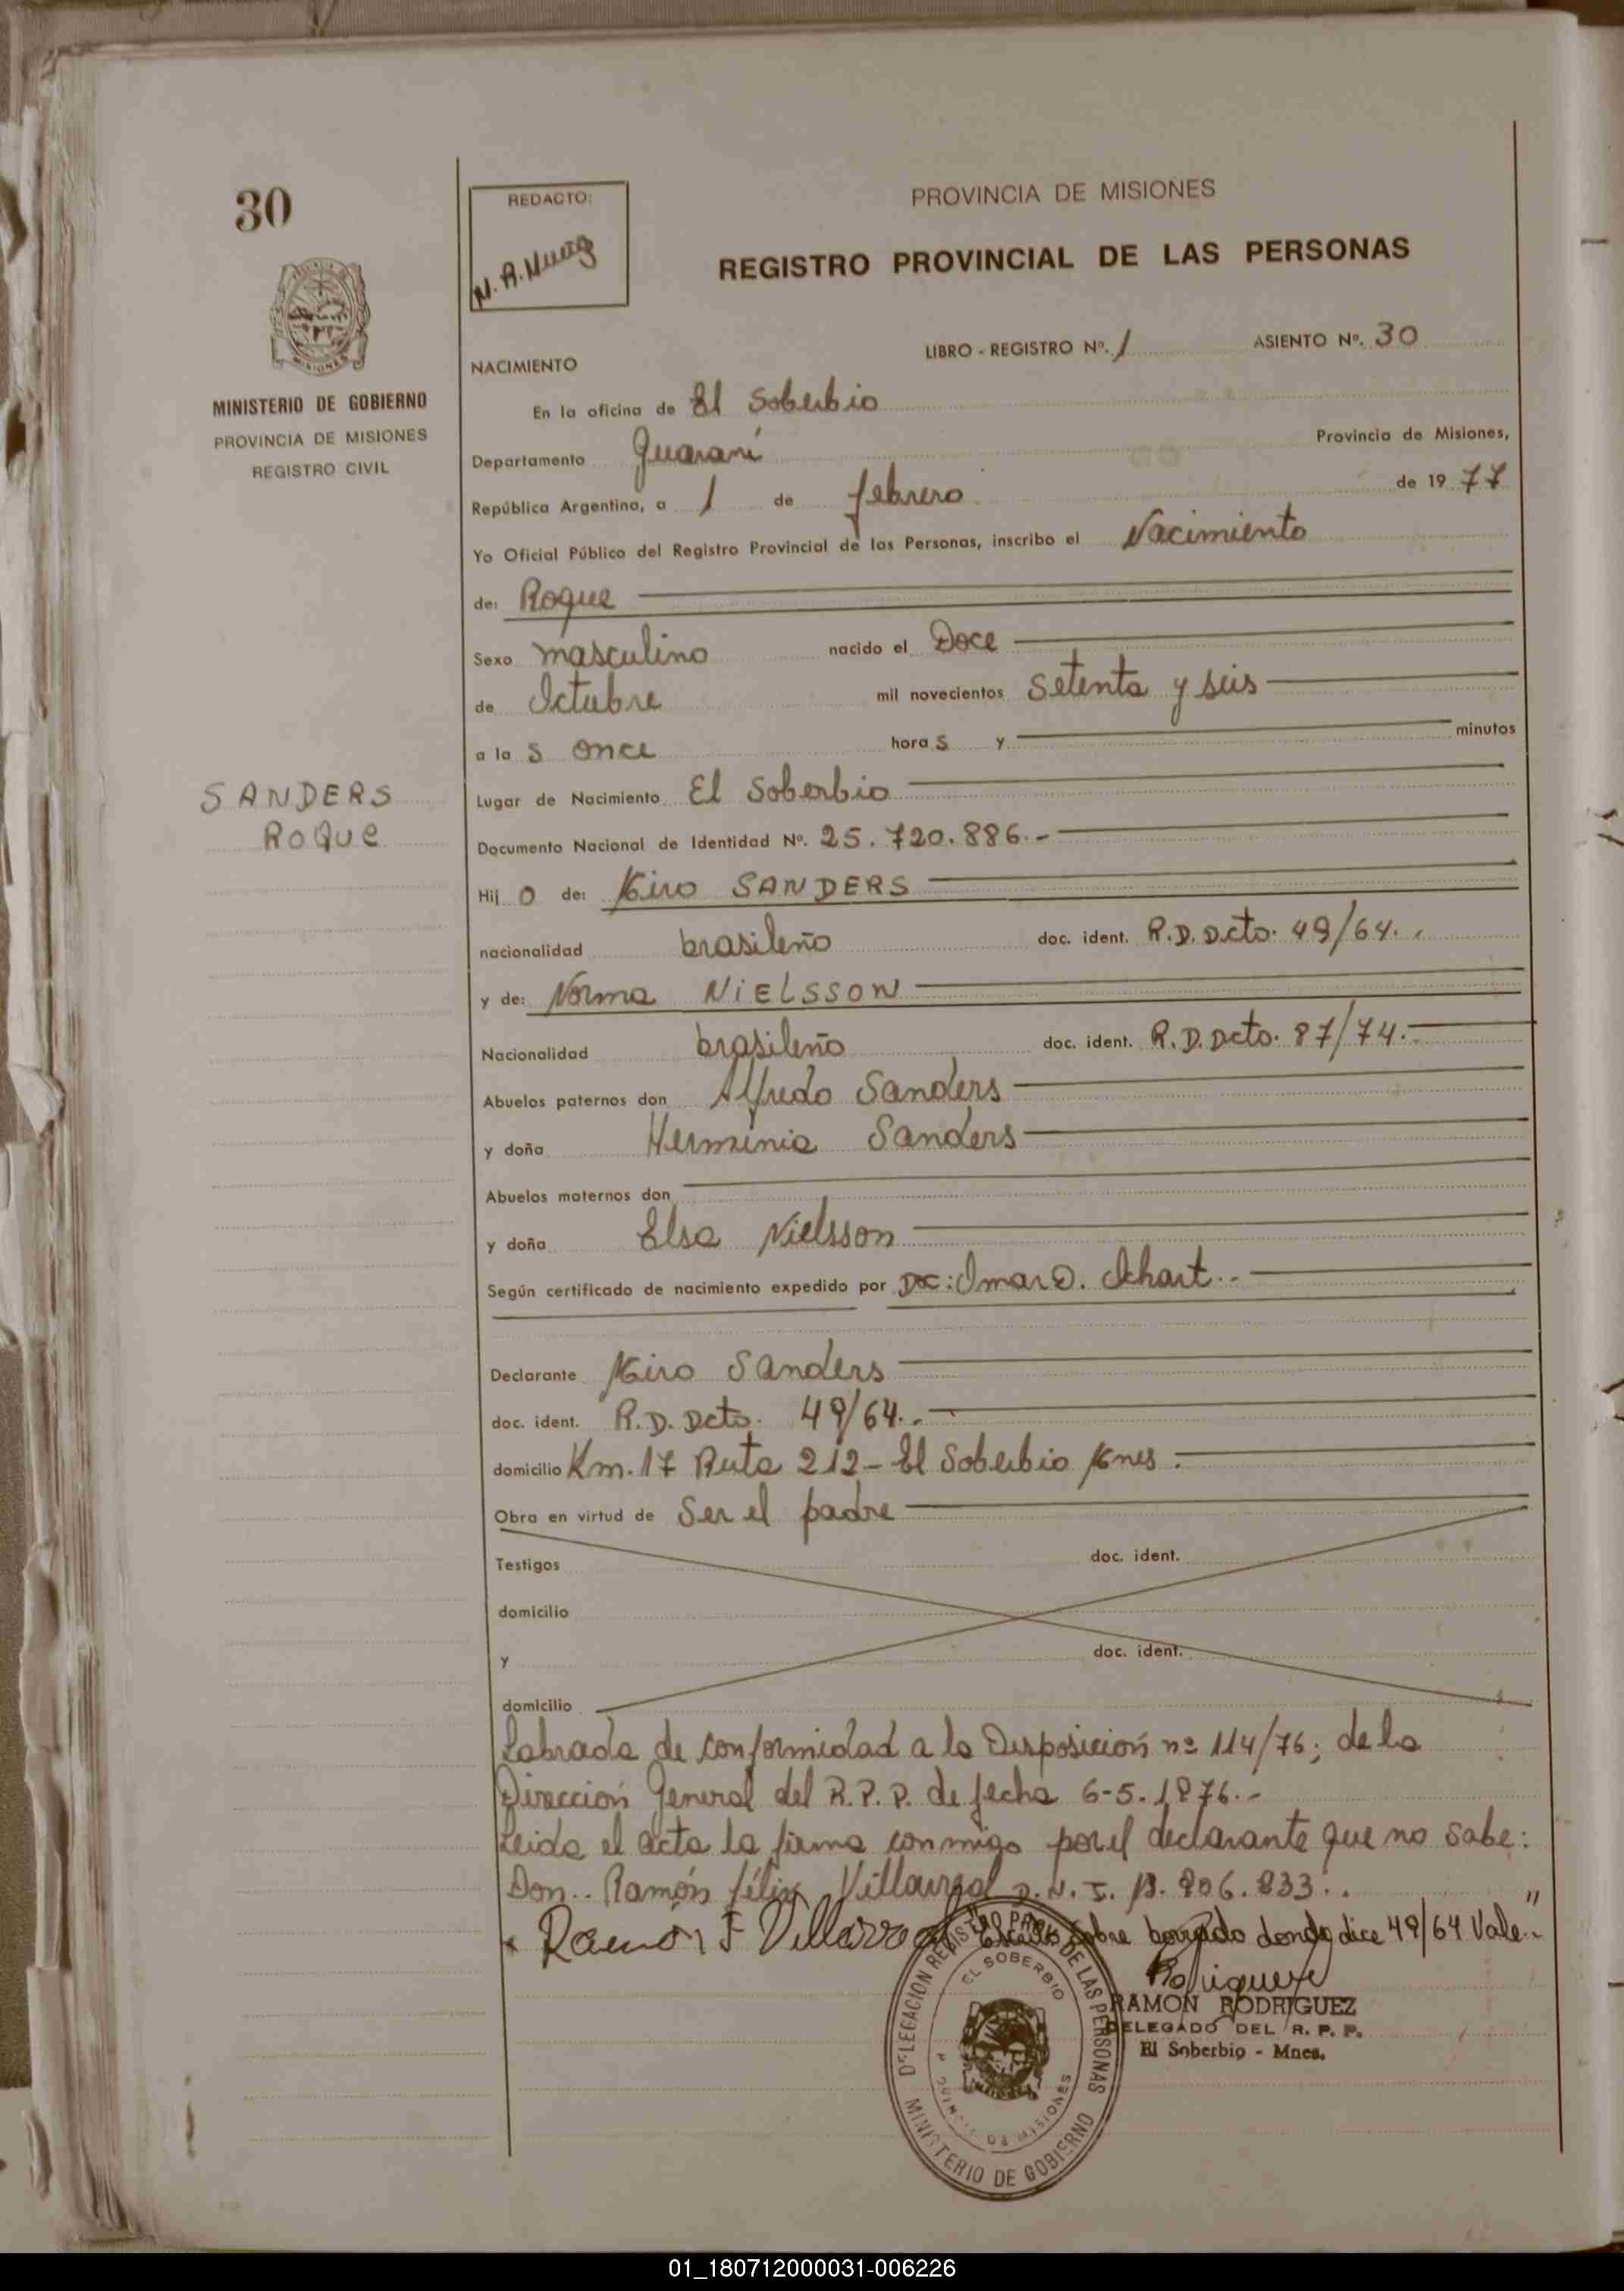 30
REDACTO:
PROVINCIA DE MISIONES
REGISTRO PROVINCIAL DE LAS PERSONAS
MINISTERIO DE GOBIERNO
PROVINCIA DE MISIONES
REGISTRO CIVIL
NACIMIENTO LIBRO - REGISTRO Nº. 1 ASIENTO Nº. 30
En la oficina de El Soberbio
Departamento Guaraní Provincia de Misiones,
República Argentina, a 1 de febrero de 1977
Yo Oficial Público del Registro Provincial de las Personas, inscribo el Nacimiento
de: Roque
Sexo masculino nacido el Doce
de Octubre mil novecientos setenta y seis
a las once horas y minutos
SANDERS
ROQUE
Lugar de Nacimiento El Soberbio
Documento Nacional de Identidad Nº. 25.720.886.-
Hijo de: Miro SANDERS
nacionalidad brasileño doc. ident. R.D. Dcto. 49/64.
y de: Norma NIELSSON
Nacionalidad brasileño doc. ident. R.D. Dcto. 87/74.-
Abuelos paternos don Alfredo Sanders
y doña Herminia Sanders
Abuelos maternos don
y doña Elsa Nielsson
Según certificado de nacimiento expedido por Doc: Omar O.
Declarante Miro Sanders
doc. ident. R.D. Dcto. 49/64.-
domicilio Km. 17 Ruta 212 - El Soberbio Mnes.
Obra en virtud de Ser el padre
Testigos doc. ident.
domicilio
y doc. ident.
domicilio
Labrada de conformidad a la Disposición nº 114/76; de la
Dirección General del R.P.P. de fecha 6-5-1976.-
Leida el acta la firma conmigo por el declarante que no sabe:
Don.. Ramón Félix Villarreal D.N.I.
Ramón F Villarreal "Escrito sobre borrado donde dice 49/64 Vale."
Rodriguez
RAMON RODRIGUEZ
DELEGADO DEL R. P. P.
El Soberbio - Mnes.
DELEGACION REGISTRO PROV. DE LAS PERSONAS
EL SOBERBIO
PROVINCIA DE MISIONES
MINISTERIO DE GOBIERNO
01_180712000031-006226